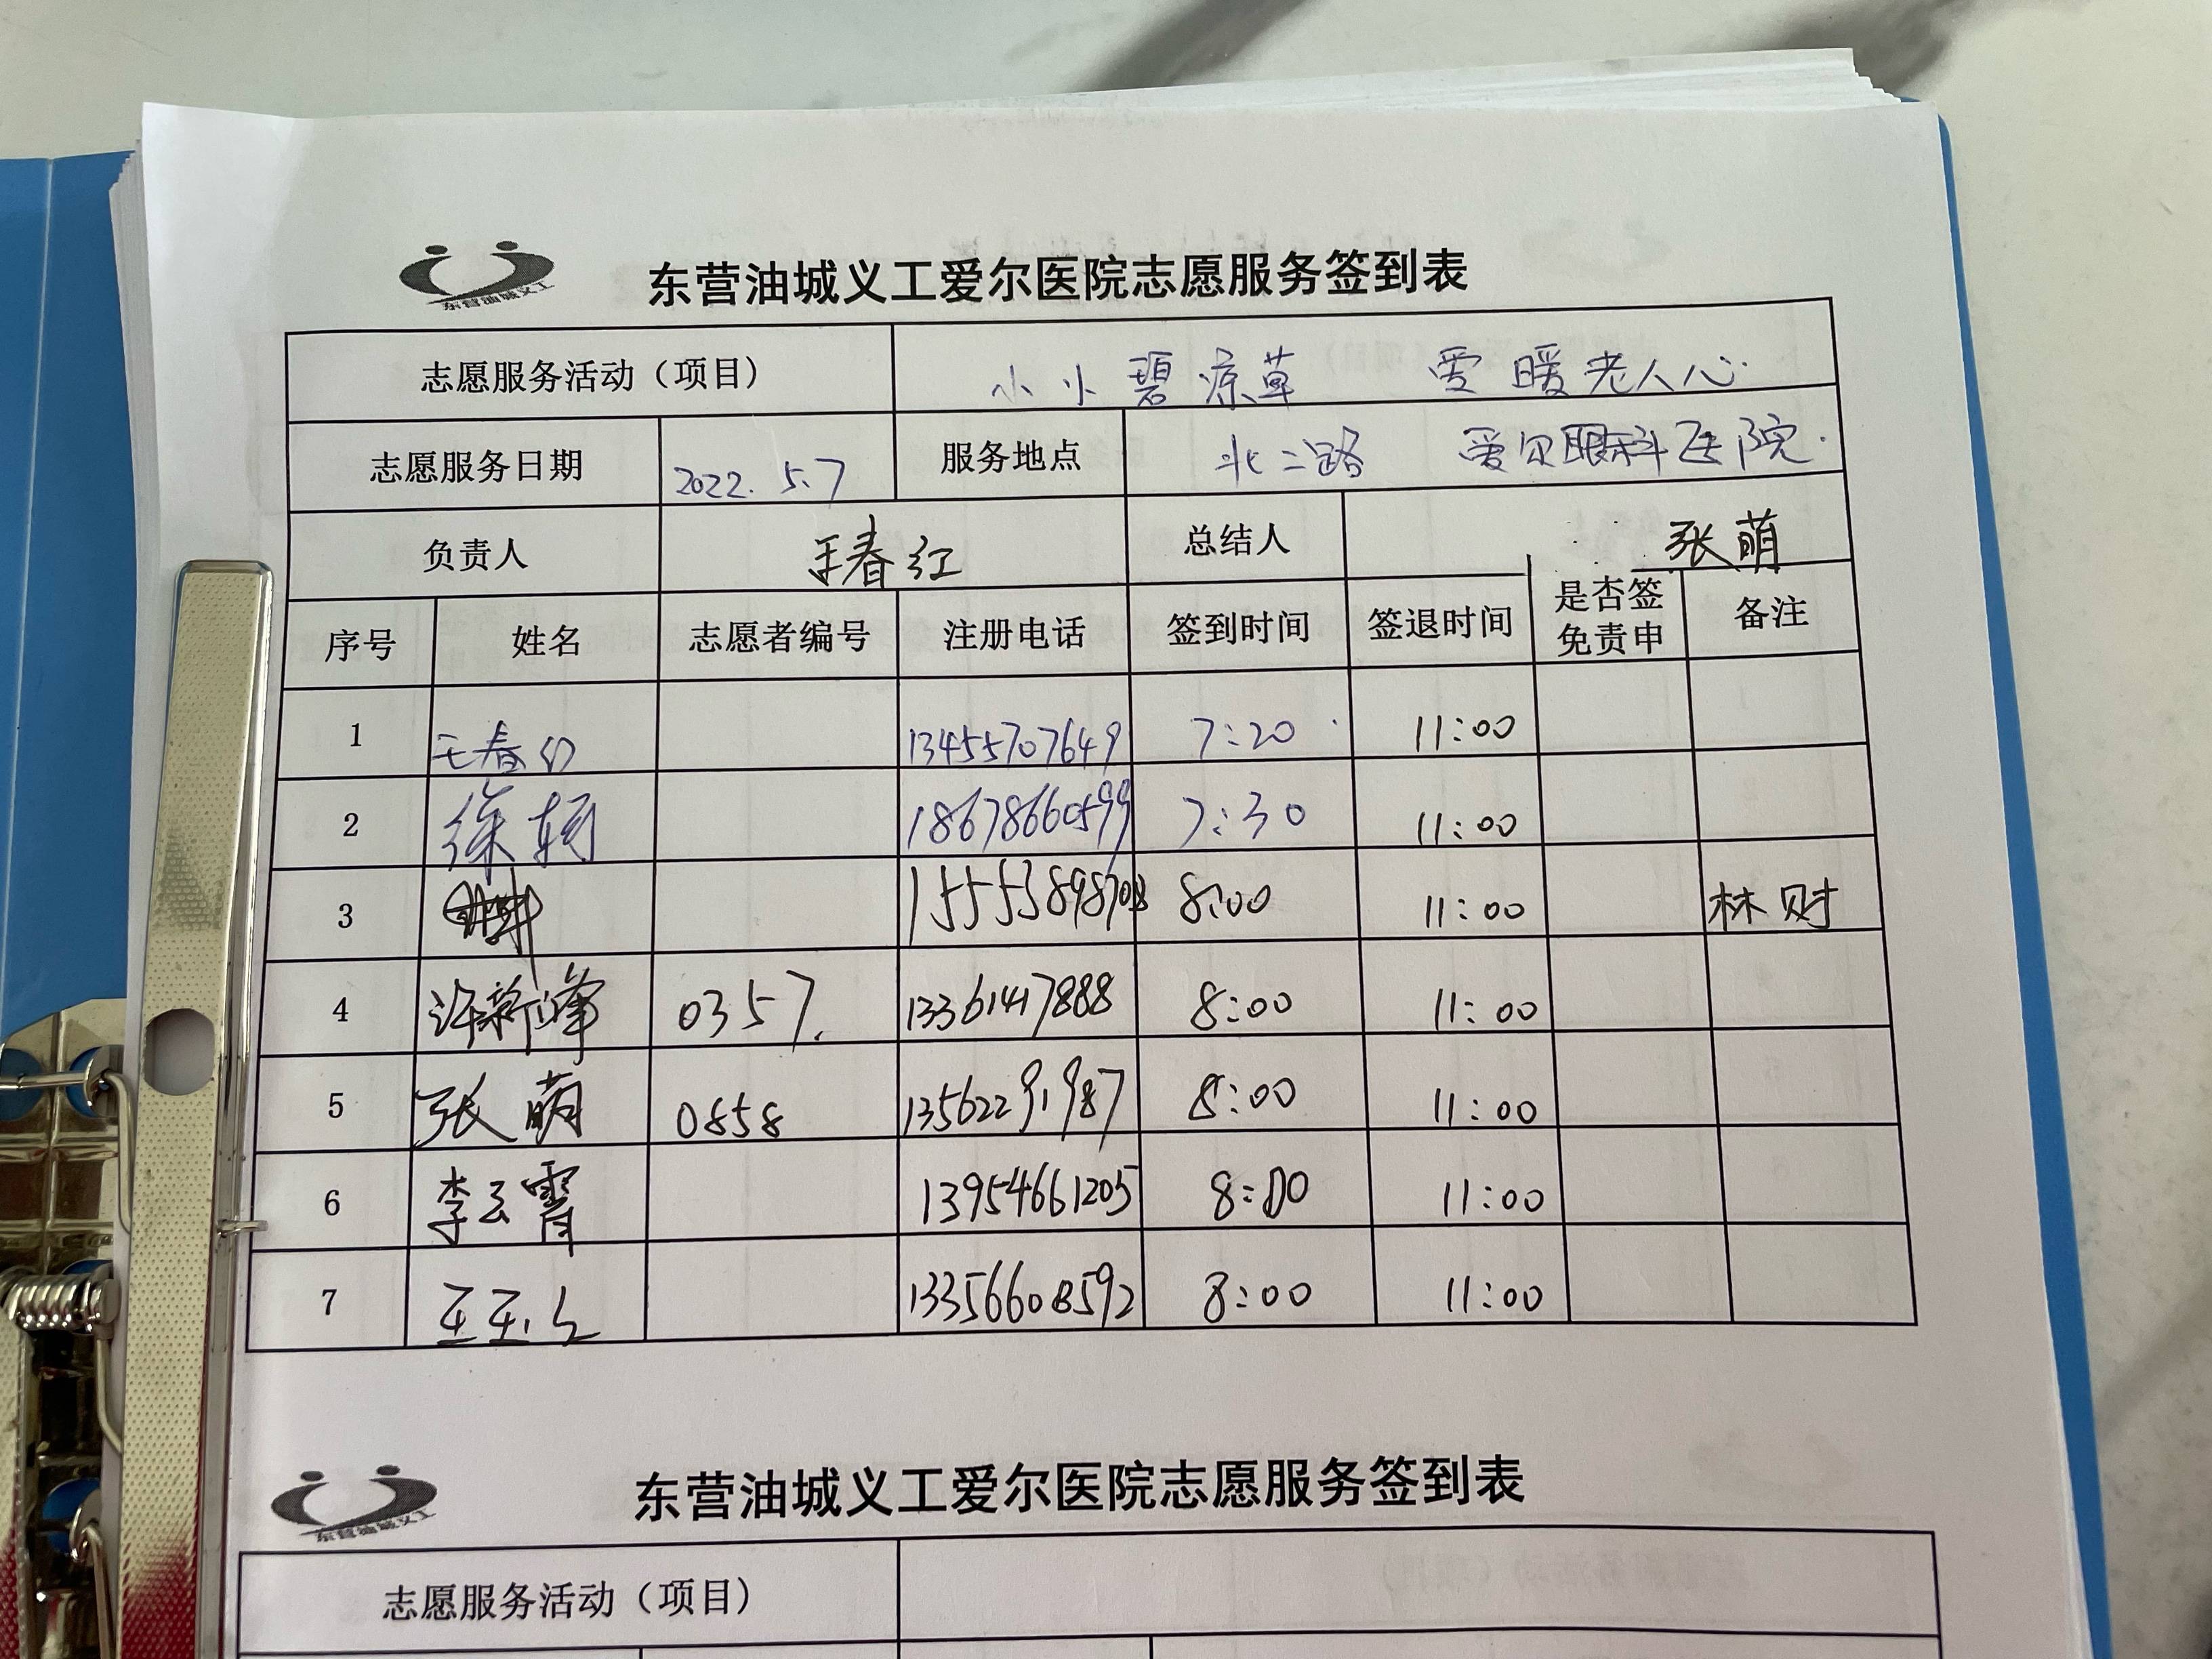 东营油城义工
东营油城义工爱尔医院志愿服务签到表
志愿服务活动（项目） 小小碧凉草 爱暖老人心.
志愿服务日期 2022.5.7 服务地点 北二路 爱尔眼科医院.
负责人 王春红 总结人 张萌
序号 姓名 志愿者编号 注册电话 签到时间 签退时间 是否签免责申 备注
1 王春红 13455707649 7:20 11:00
2 徐 18678660599 7:30 11:00
3 8:00 11:00 林财
4 许新峰 0357. 13361417888 8:00 11:00
5 张萌 0858 13562291987 8:00 11:00
6 李云霄 13954661205 8:00 11:00
7 王玉 13356608592 8:00 11:00
东营油城义工
东营油城义工爱尔医院志愿服务签到表
志愿服务活动（项目）